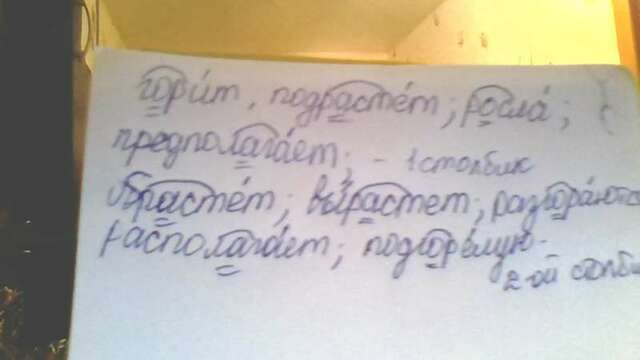 гори́т, подрасте́т; росла́;
предполага́ет; - 1 столбик
обрасте́т; вы́растет; разгора́ются
располага́ет; подгоре́лую.
2-ой столбик